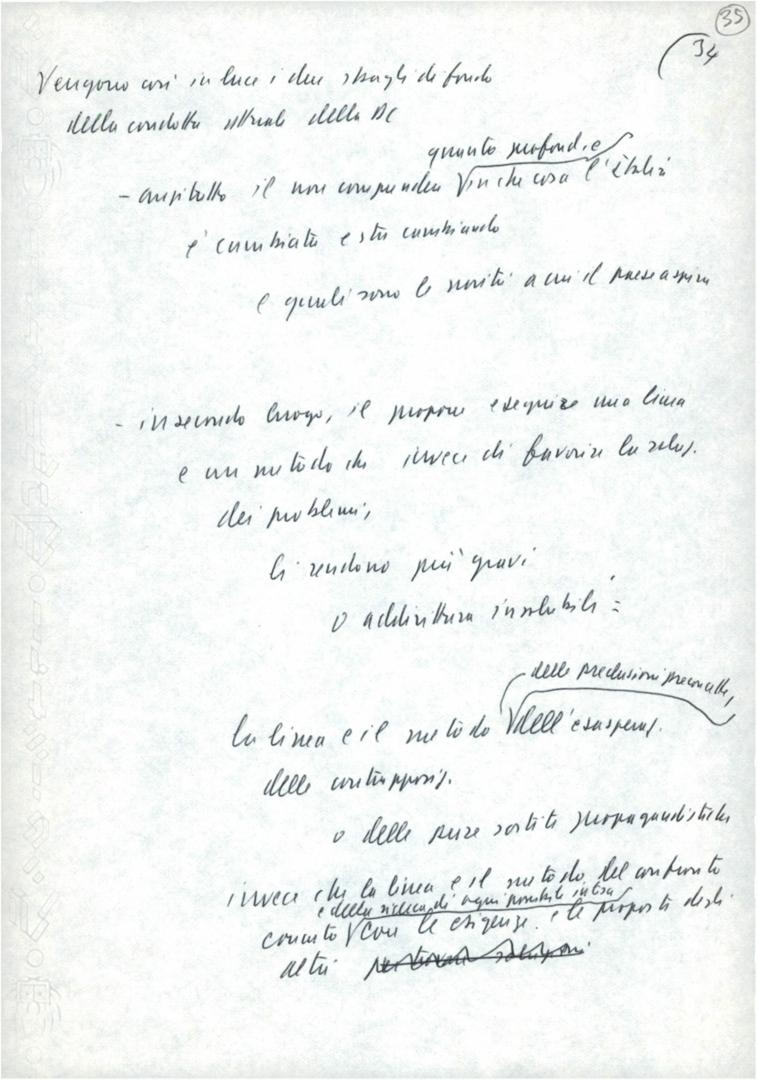 35
34
Vengono così in luce i due sbagli di fondo
della condotta attuale della DC
quanto profond. e
- anzitutto il non comprendere in che cosa l'Italia
è cambiata e sta cambiando
e quali sono le novità a cui il paese aspira
- in secondo luogo, il proporre e seguire una linea
e un metodo che invece di favorire la soluz.
dei problemi,
li rendono più gravi
o addirittura insolubili:
delle preclusioni preconcette,
la linea e il metodo dell'esasperaz.
delle contrapposiz.
o delle pure sortite propagandistiche
invece che la linea e il metodo del confronto
e della ricerca di ogni possibile intesa
con le esigenze e le proposte degli
altri per trovare soluzioni